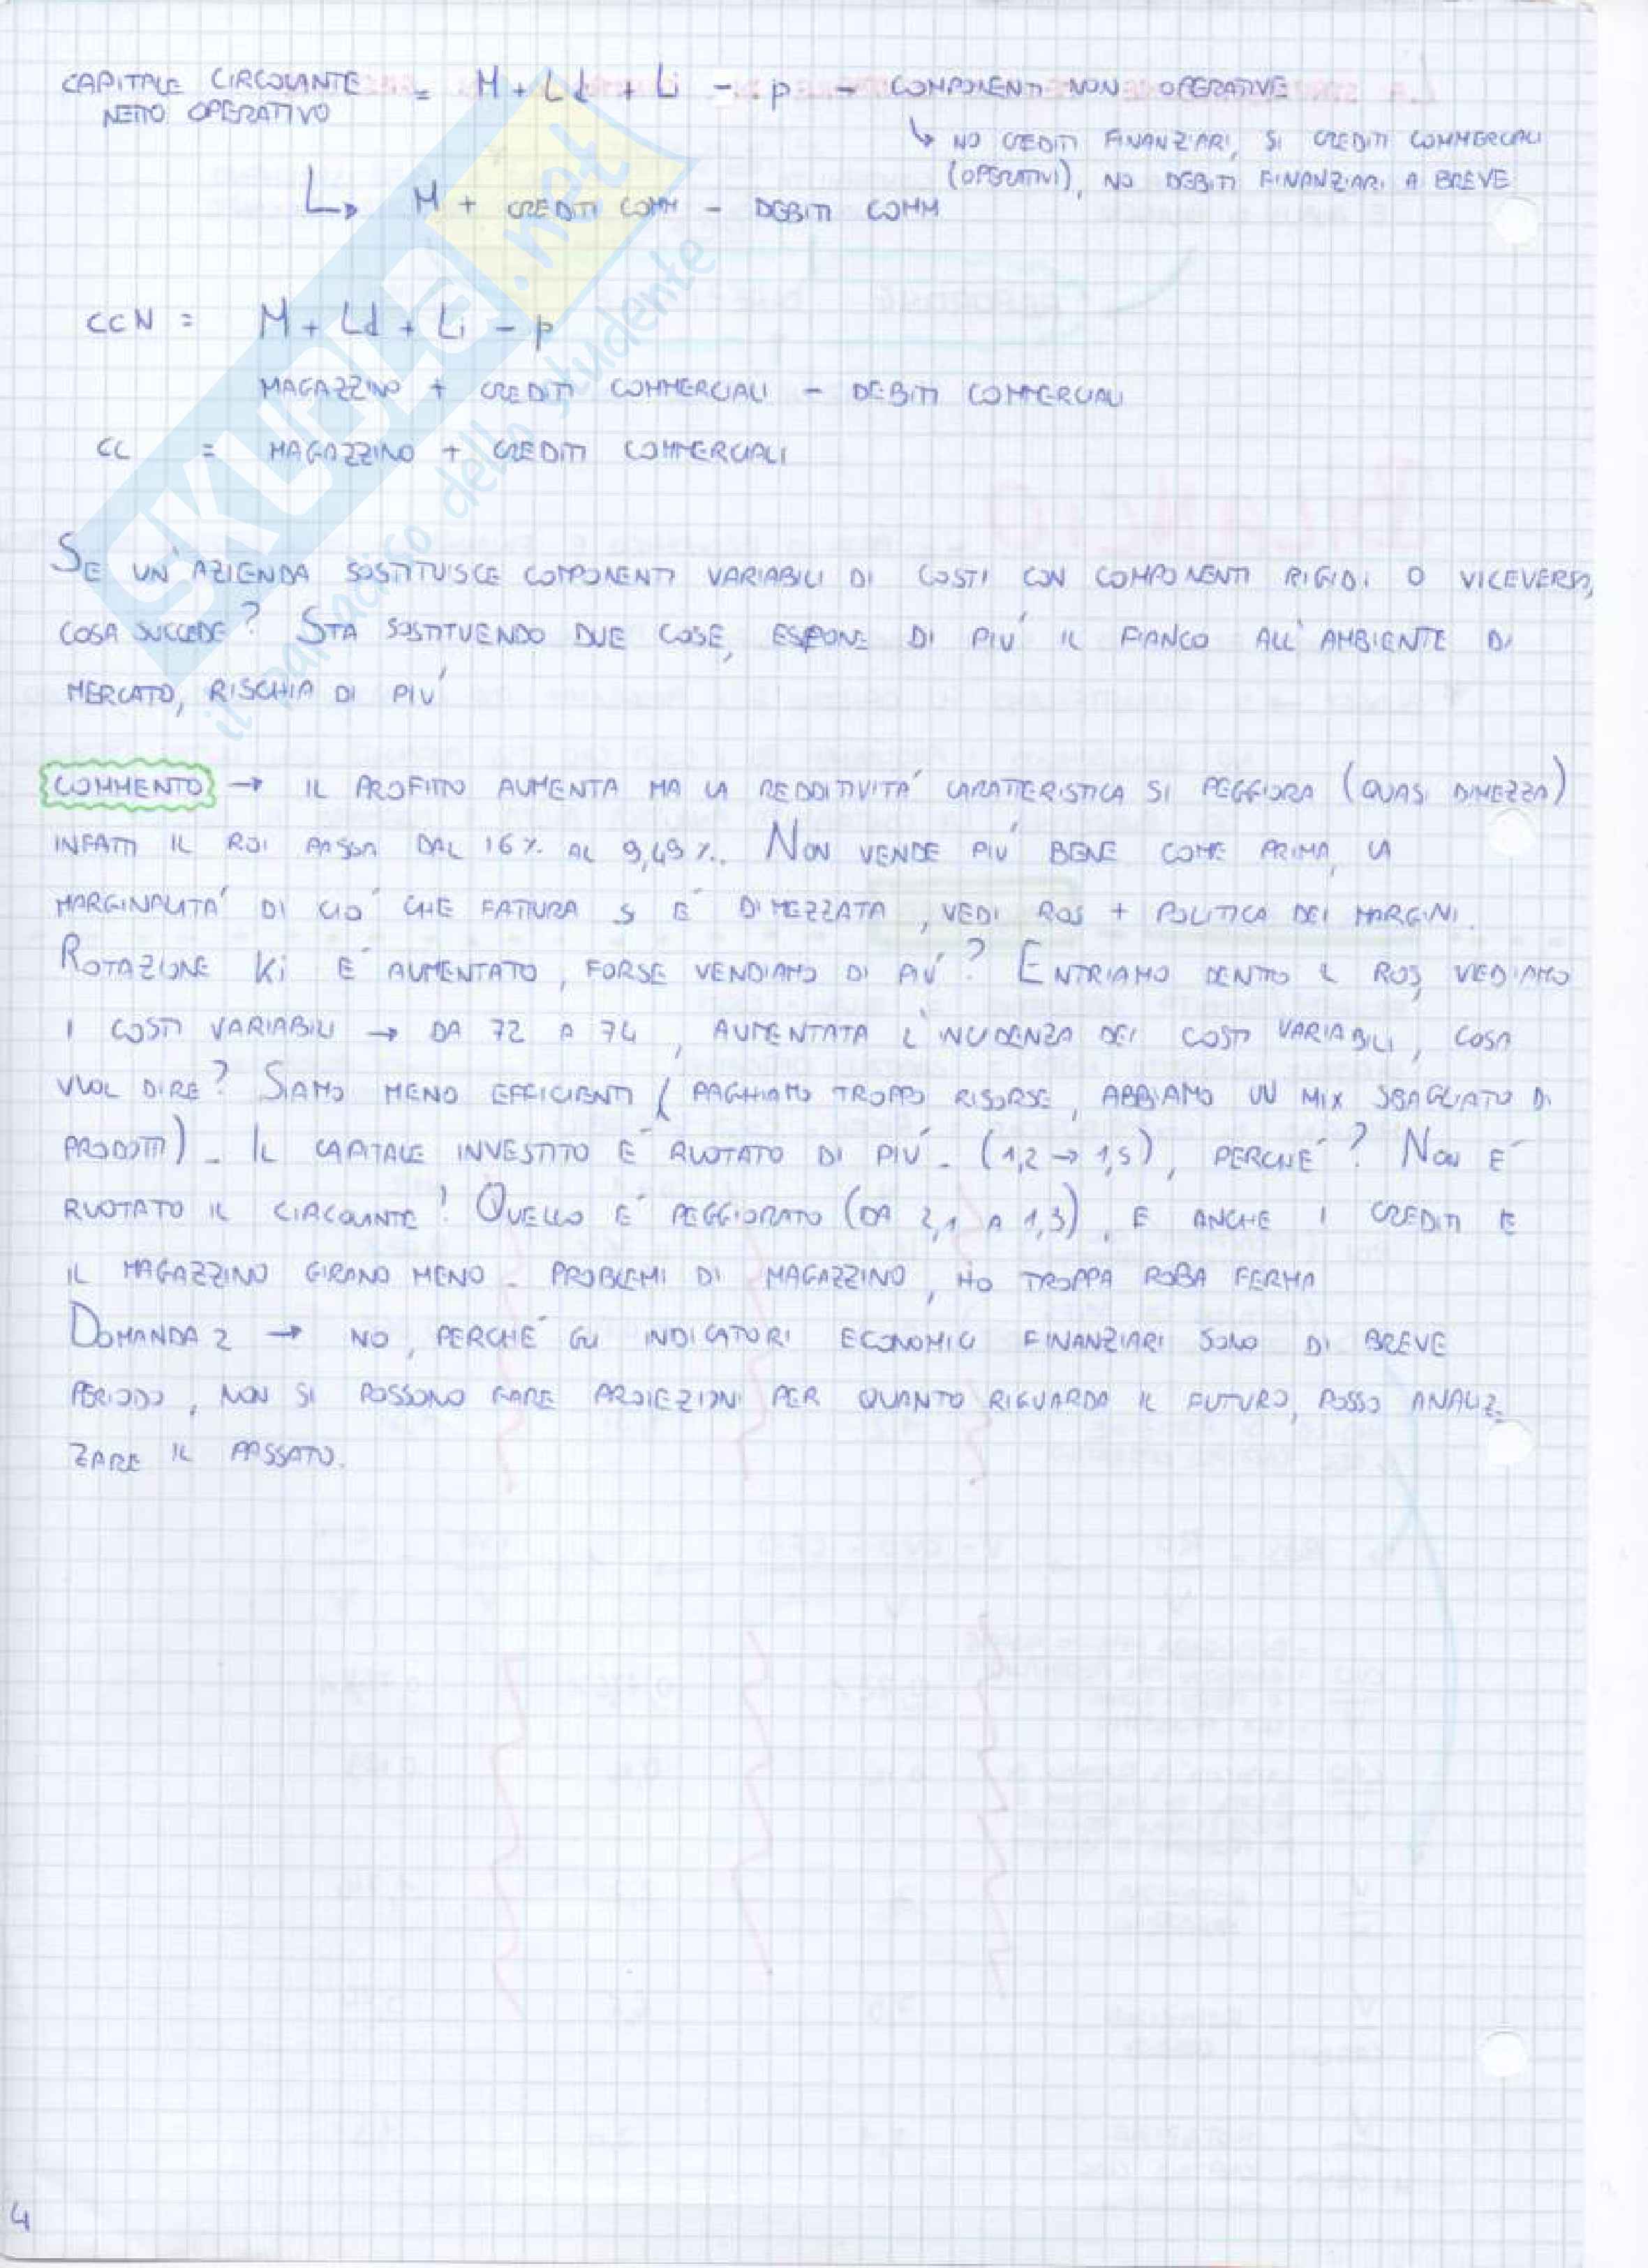 CAPITALE CIRCOLANTE NETTO OPERATIVO = M + Ld + Li - p - COMPONENTI NON OPERATIVE
↳ NO CREDITI FINANZIARI, SI CREDITI COMMERCIALI
(OPERATIVI), NO DEBITI FINANZIARI A BREVE
↳ M + CREDITI COMM - DEBITI COMM
CCN = M + Ld + Li - p
MAGAZZINO + CREDITI COMMERCIALI - DEBITI COMMERCIALI
CC = MAGAZZINO + CREDITI COMMERCIALI
SE UN'AZIENDA SOSTITUISCE COMPONENTI VARIABILI DI COSTI CON COMPONENTI RIGIDI O VICEVERSA,
COSA SUCCEDE? STA SOSTITUENDO DUE COSE, ESPONE DI PIU' IL FIANCO ALL'AMBIENTE DI
MERCATO, RISCHIA DI PIU'
COMMENTO → IL PROFITTO AUMENTA MA LA REDDITIVITA' CARATTERISTICA SI PEGGIORA (QUASI DIMEZZA)
INFATTI IL ROI PASSA DAL 16% AL 9,49%. NON VENDE PIU' BENE COME PRIMA, LA
MARGINALITA' DI CIO' CHE FATTURA SI E' DIMEZZATA, VEDI ROS + POLITICA DEI MARGINI.
ROTAZIONE Ki E' AUMENTATO, FORSE VENDIAMO DI PIU'? ENTRIAMO DENTRO IL ROS, VEDIAMO
I COSTI VARIABILI → DA 72 A 74, AUMENTATA L'INCIDENZA DEI COSTI VARIABILI, COSA
VUOL DIRE? SIAMO MENO EFFICIENTI (PAGHIAMO TROPPO RISORSE, ABBIAMO UN MIX SBAGLIATO DI
PRODOTTI). IL CAPITALE INVESTITO E' RUOTATO DI PIU'. (1,2 → 1,5), PERCHE'? NON E'
RUOTATO IL CIRCOLANTE! QUELLO E' PEGGIORATO (DA 2,1 A 1,3), E ANCHE I CREDITI E
IL MAGAZZINO GIRANO MENO. PROBLEMI DI MAGAZZINO, HO TROPPA ROBA FERMA
DOMANDA 2 → NO, PERCHE' GLI INDICATORI ECONOMICI FINANZIARI SONO DI BREVE
PERIODO, NON SI POSSONO FARE PROIEZIONI PER QUANTO RIGUARDA IL FUTURO, POSSO ANALIZ-
ZARE IL PASSATO.
4
SKUOLA.net
il paradiso dello studente